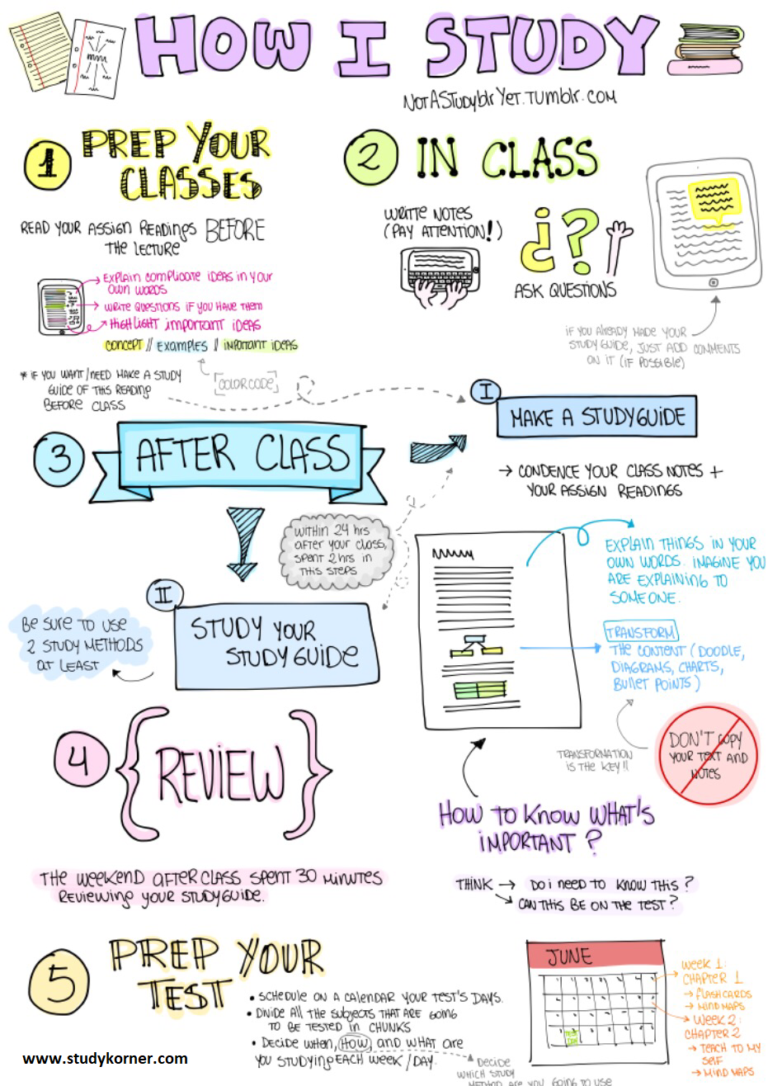 HOW I STUDY
NOTASTUDYblrYET.TUMblr.COM
1 PREP YOUR
CLASSES
READ YOUR ASSIGN READINGS BEFORE
THE LECTURE
EXPLAIN COMPLICATE IDEAS IN YOUR
OWN WORDS
WRITE QUESTIONS IF YOU HAVE THEM
HIGHLIGHT IMPORTANT IDEAS
CONCEPT // EXAMPLES // IMPORTANT IDEAS
[COLOR CODE]
* IF YOU WANT/NEED MAKE A STUDY
GUIDE OF THIS READING
BEFORE CLASS
2 IN CLASS
WRITE NOTES
(PAY ATTENTION!)
¿?
ASK QUESTIONS
IF YOU ALREADY MADE YOUR
STUDY GUIDE, JUST ADD COMMENTS
ON IT (IF POSSIBLE)
3 AFTER CLASS
I
MAKE A STUDYGUIDE
→ CONDENCE YOUR CLASS NOTES +
YOUR ASSIGN READINGS
WITHIN 24 HRS
AFTER YOUR CLASS,
SPENT 2 HRS IN
THIS STEPS
EXPLAIN THINGS IN YOUR
OWN WORDS. IMAGINE YOU
ARE EXPLAINING TO
SOMEONE.
TRANSFORM
THE CONTENT (DOODLE,
DIAGRAMS, CHARTS,
BULLET POINTS)
TRANSFORMATION
IS THE KEY!!
DON'T COPY
YOUR TEXT AND
NOTES
II
STUDY YOUR
STUDYGUIDE
BE SURE TO USE
2 STUDY METHODS
AT LEAST
HOW TO KNOW WHAT'S
IMPORTANT?
THINK → DO I NEED TO KNOW THIS?
→ CAN THIS BE ON THE TEST?
4 {REVIEW}
THE WEEKEND AFTER CLASS SPENT 30 MINUTES
REVIEWING YOUR STUDYGUIDE.
5 PREP YOUR
TEST
• SCHEDULE ON A CALENDAR YOUR TEST'S DAYS.
• DIVIDE ALL THE SUBJECTS THAT ARE GOING
TO BE TESTED IN CHUNKS
• DECIDE WHEN, HOW, AND WHAT ARE
YOU STUDYING EACH WEEK/DAY.
DECIDE
WHICH STUDY
METHOD ARE YOU GOING TO USE
JUNE
WEEK 1:
CHAPTER 1
→ FLASHCARDS
→ MIND MAPS
WEEK 2:
CHAPTER 2
→ TEACH TO MY
SELF
→ MIND MAPS
www.studykorner.com